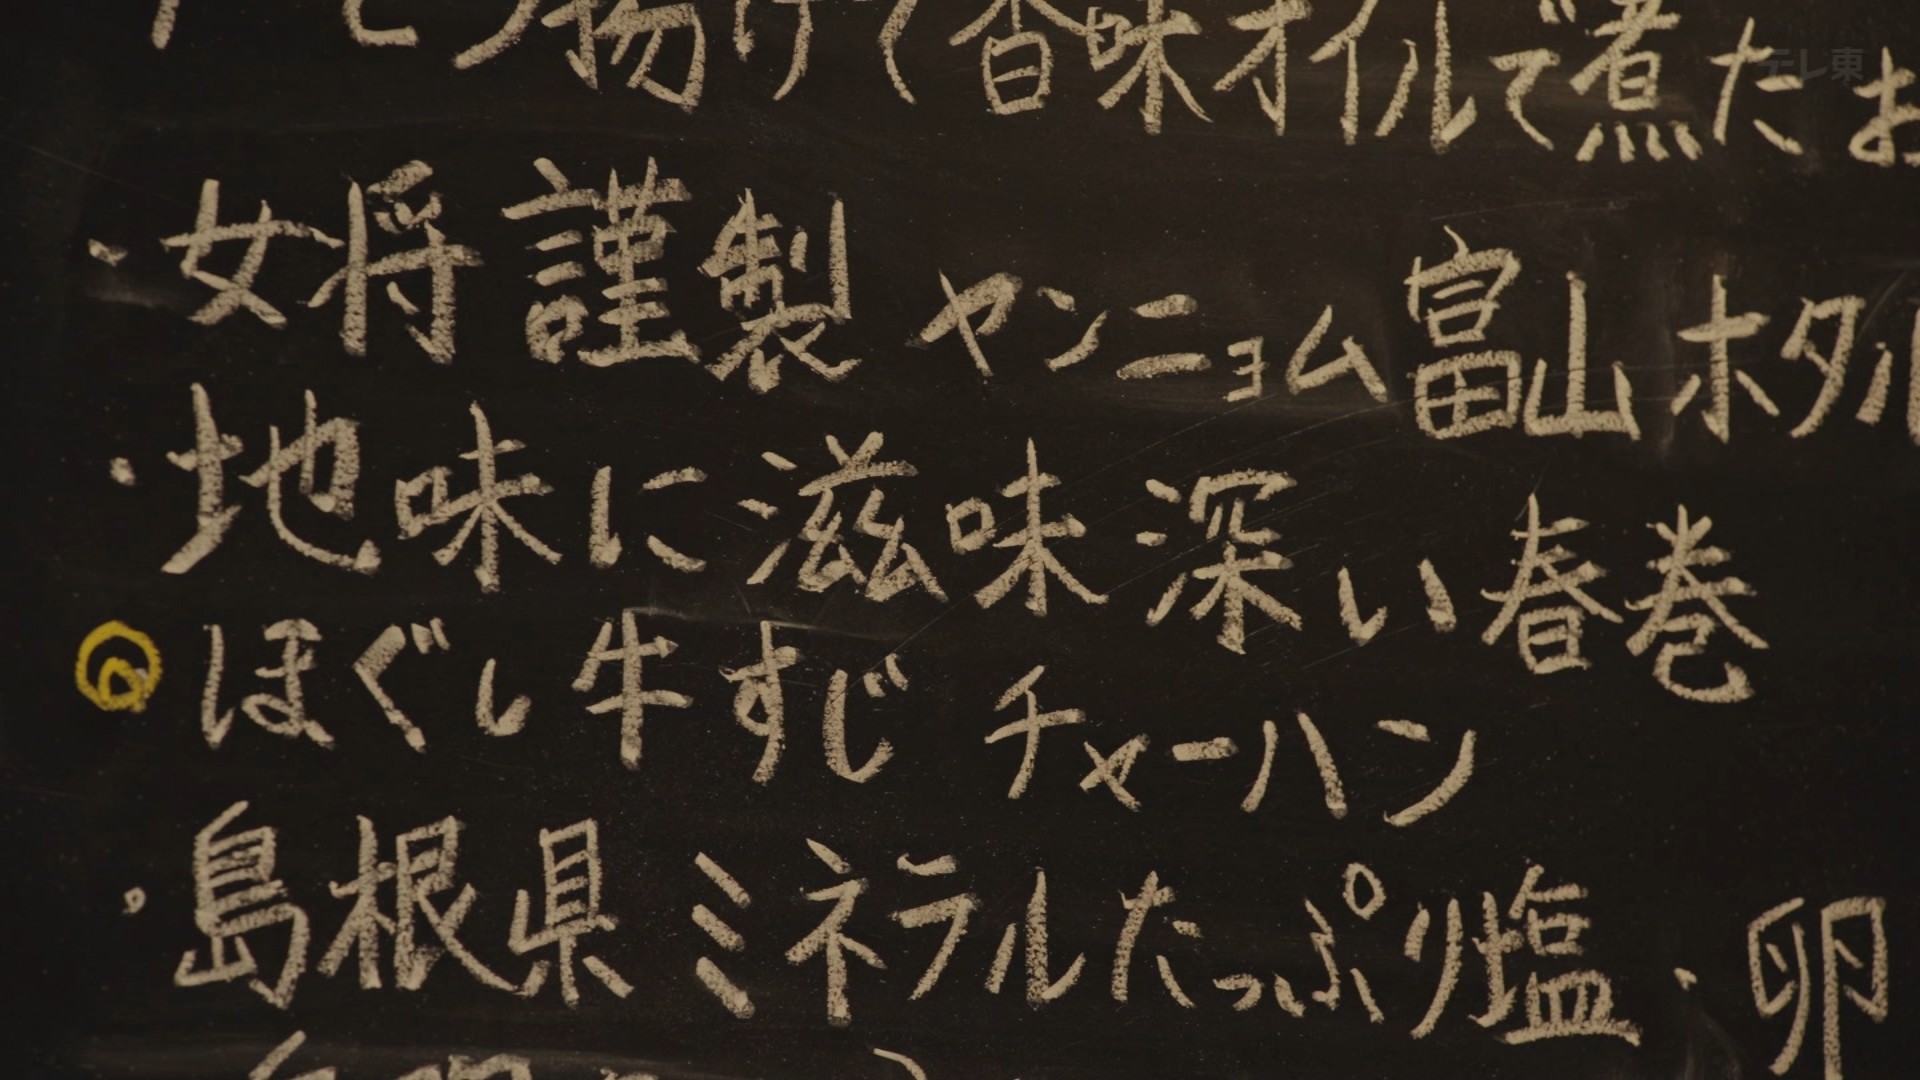 揚げ(香味オイルで煮たお
テレ東
・女将謹製 ヤンニョム富山ホタル
・地味に滋味深い春巻
◎ほぐし牛すじ チャーハン
・島根県ミネラルたっぷり塩・卵